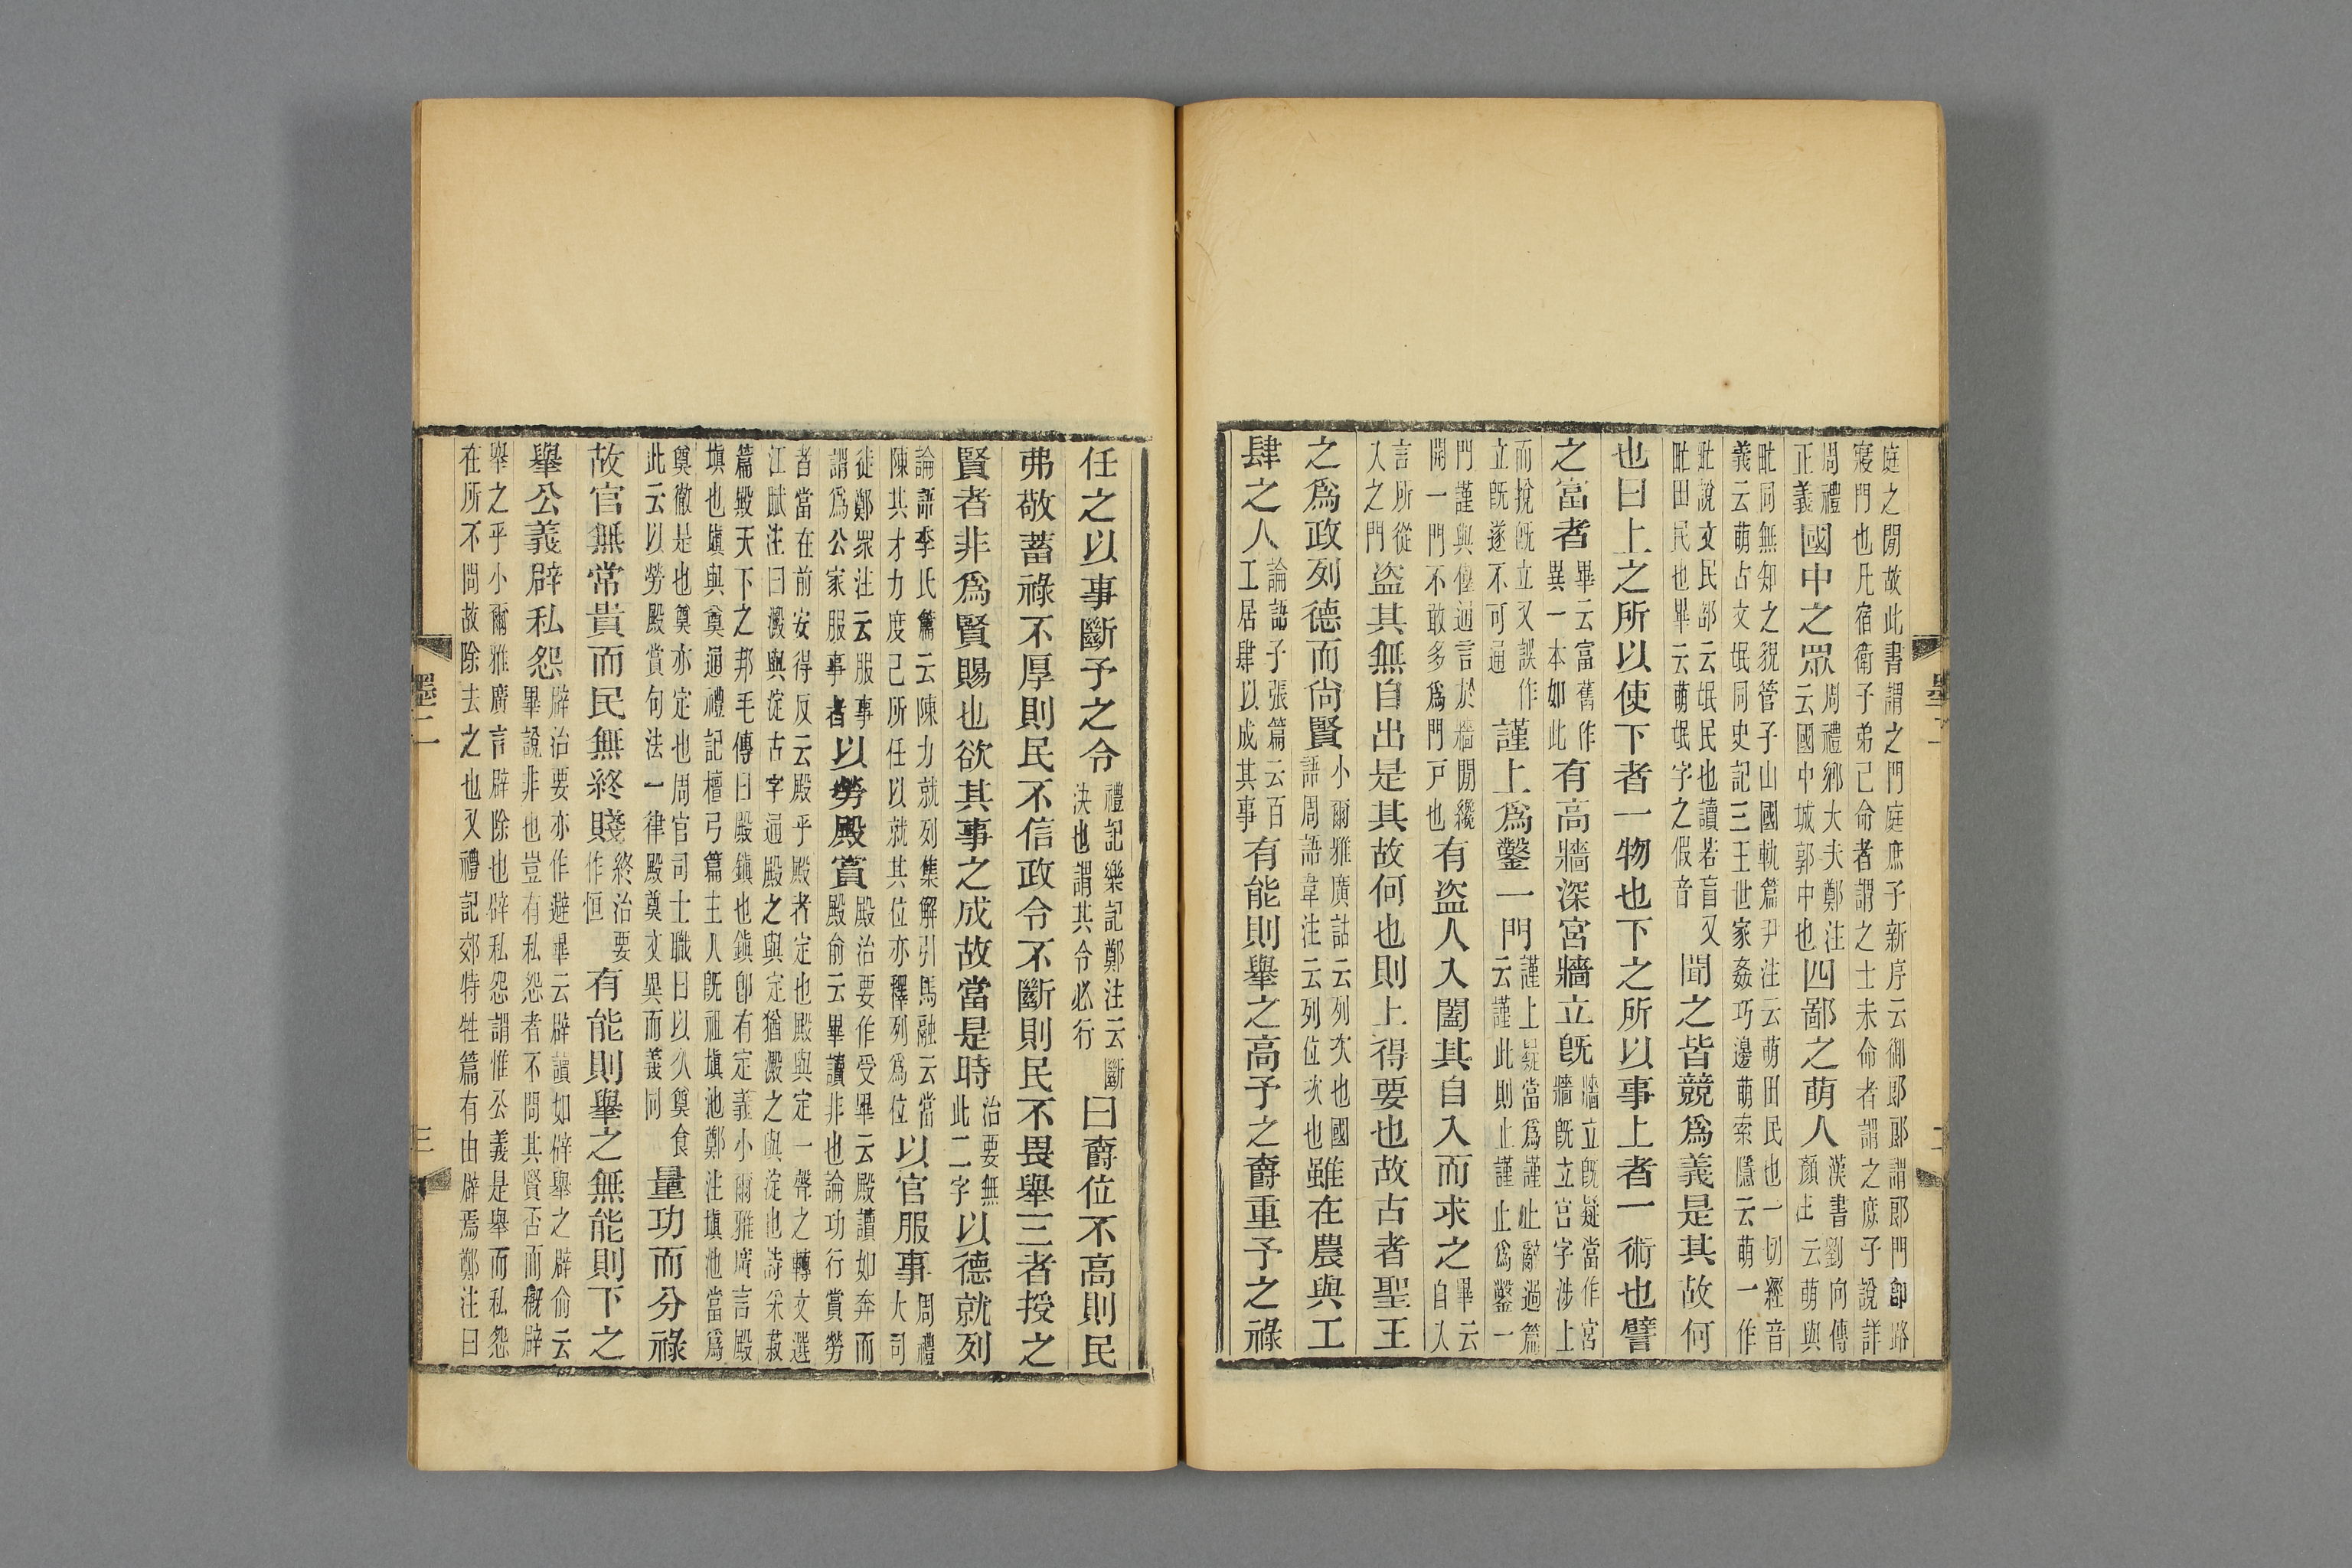 庭之閒故此書謂之門庭庶子新序云御郎郎謂郎門卽路寢門也凡宿衛子弟已命者謂之士未命者謂之庶子說詳
周禮正義國中之眾周禮鄉大夫鄭注云國中城郭中也四鄙之萌人漢書劉向傳顏注云萌與
甿同無知之貌管子山國軌篇尹注云萌田民也一切經音義云萌古文氓同史記三王世家姦巧邊萌索隱云萌一作
甿說文民部云氓民也讀若盲又甿田民也畢云萌氓字之假音聞之皆競爲義是其故何
也曰上之所以使下者一物也下之所以事上者一術也譬
之富者畢云富舊作異一本如此有高牆深宮牆立旣牆立旣疑當作宮牆旣立宮字涉上
而挩旣立又誤作立旣遂不可通謹上爲鑿一門謹上疑當爲謹止辭過篇云謹此則止謹止爲鑿一
門謹與僅通言於牆閒纔開一門不敢多爲門戶也有盜人入闔其自入而求之畢云自人
言所從入之門盜其無自出是其故何也則上得要也故古者聖王
之爲政列德而尙賢小爾雅廣詁云列次也國語周語韋注云列位次也雖在農與工
肆之人論語子張篇云百工居肆以成其事有能則舉之高予之爵重予之祿
任之以事斷予之令禮記樂記鄭注云斷決也謂其令必行曰爵位不高則民
弗敬蓄祿不厚則民不信政令不斷則民不畏舉三者授之
賢者非爲賢賜也欲其事之成故當是時治要無此二字以德就列
論語季氏篇云陳力就列集解引馬融云當陳其才力度己所任以就其位亦釋列爲位以官服事周禮大司
徒鄭眾注云服事謂爲公家服事者以勞殿賞殿治要作受畢云殿讀如奔而殿俞云畢讀非也論功行賞勞
者當在前安得反云殿乎殿者定也殿與定一聲之轉文選江賦注曰澱與淀古字通殿之與定猶澱之與淀也詩采菽
篇殿天下之邦毛傳曰殿鎭也鎭卽有定義小爾雅廣言殿塡也塡與奠通禮記檀弓篇主人旣祖塡池鄭注塡池當爲
奠徹是也奠亦定也周官司士職曰以久奠食此云以勞殿賞句法一律殿奠文異而義同量功而分祿
故官無常貴而民無終賤終治要作恒有能則舉之無能則下之
舉公義辟私怨辟治要亦作避畢云辟讀如辟舉之辟俞云畢說非也豈有私怨者不問其賢否而槪辟
舉之乎小爾雅廣言辟除也辟私怨謂惟公義是舉而私怨在所不問故除去之也又禮記郊特牲篇有由辟焉鄭注曰
墨二
三